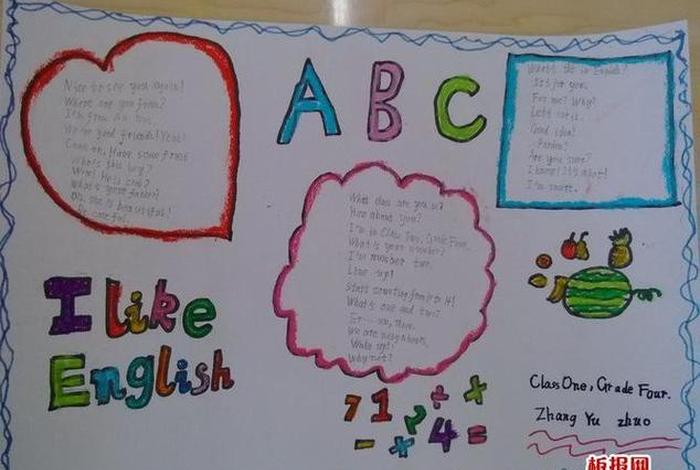 Nice to see you again!
Where are you from?
I'm from
We're good friends! Yeah!
Come on, Have some fruit
Who's this boy?
Wow! He is cool?
What's your father?
Oh, she is beautiful!
Be careful.
ABC
What's this in English?
It's for you.
For me? Why?
Let's eat it.
Good idea!
Are you sure?
I'm sure.
What class are you in?
How about you?
I'm in Class Two, Grade Four.
What is your number?
I'm number two.
Line up!
Start counting from 1 to 14!
What's one and two?
Er... um, three.
We are neighbours.
Wake up!
Why not?
I like
English
7 1 2 ÷ ×
- * 4 = +
Class One, Grade Four.
Zhang Yu zhuo
板报网